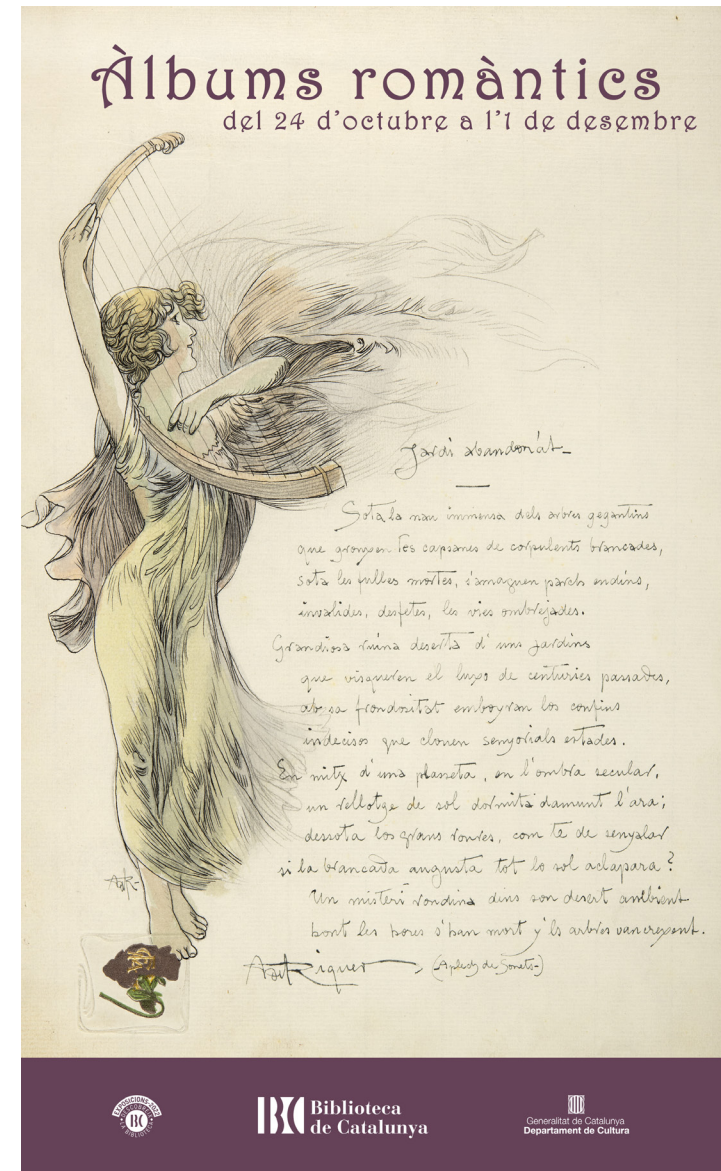 Àlbums romàntics
del 24 d'octubre a l'1 de desembre
Jardi abandonat-
Sota la nau immensa dels arbres gegantins
que gronxen les capsanes de corpulents brancades,
sota les fulles mortes, s'amaguen parch endins,
invalides, desfetes, les vies ombrejades.
Grandiosa ruina deserta d' uns jardins
que visqueren el luxo de centuries passades,
sa frondositat emboyran los confins
indecisos que clouen senyorials estades.
En mitx d'una plasseta, en l'ombra secular,
un rellotge de sol dormita damunt l'ara;
dessota los grans roures, com te de senyalar
si la brancada augusta tot lo sol aclapara?
Un misteri rondina dins son desert ambient
hont les hores s'han mort y'ls arbres van creixent.
A de Riquer (Aplech de Sonets-)
AdR-
EXPOSICIONS·2022
DESCOBRIU
LA BIBLIOTECA
BC
BC Biblioteca
de Catalunya
Generalitat de Catalunya
Departament de Cultura